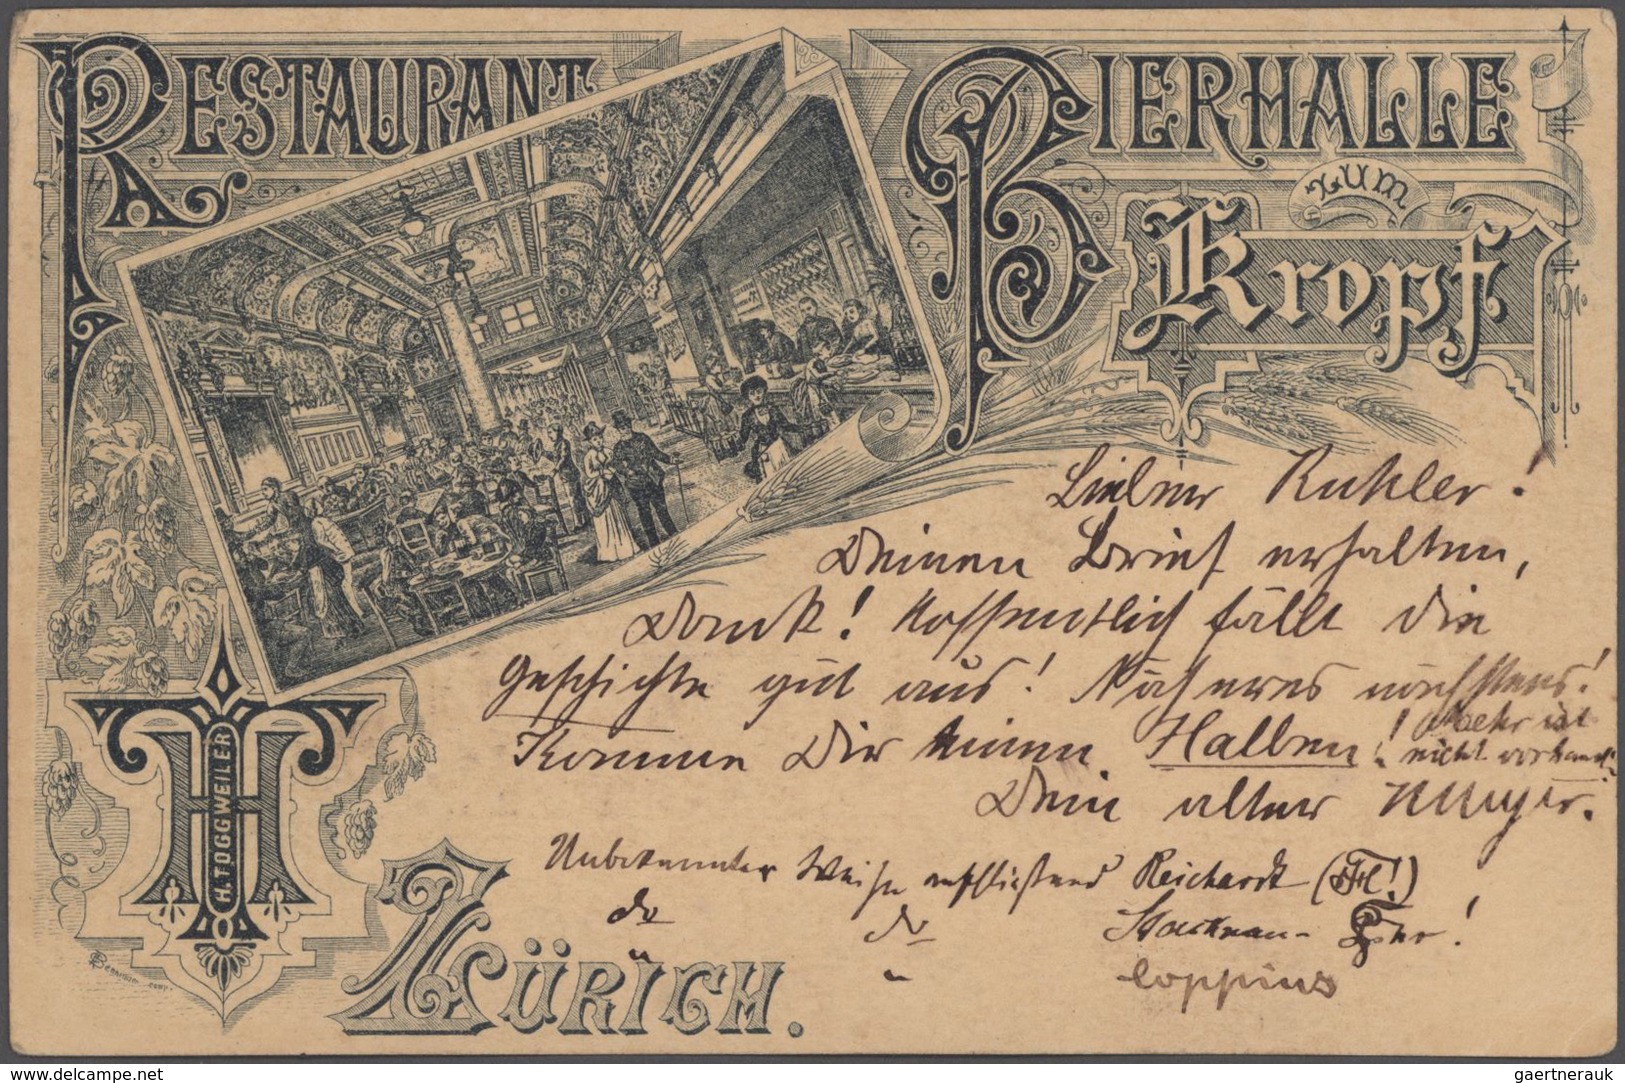 RESTAURANT
BIERHALLE
ZUM
Kropf
H. TOGGWEILER
ZÜRICH.
Lieber Ruhler!
Deinen Brief erhalten,
Dank! Hoffentlich fällt die
Geschichte gut aus! Näheres nächstens!
Komme Dir einen Halben! Mehr ist
nicht vorhand.
Dein alter
Unbekannter Weise anschließend Reichardt
do do
" " Coppius
www.delcampe.net
gaertnerauk